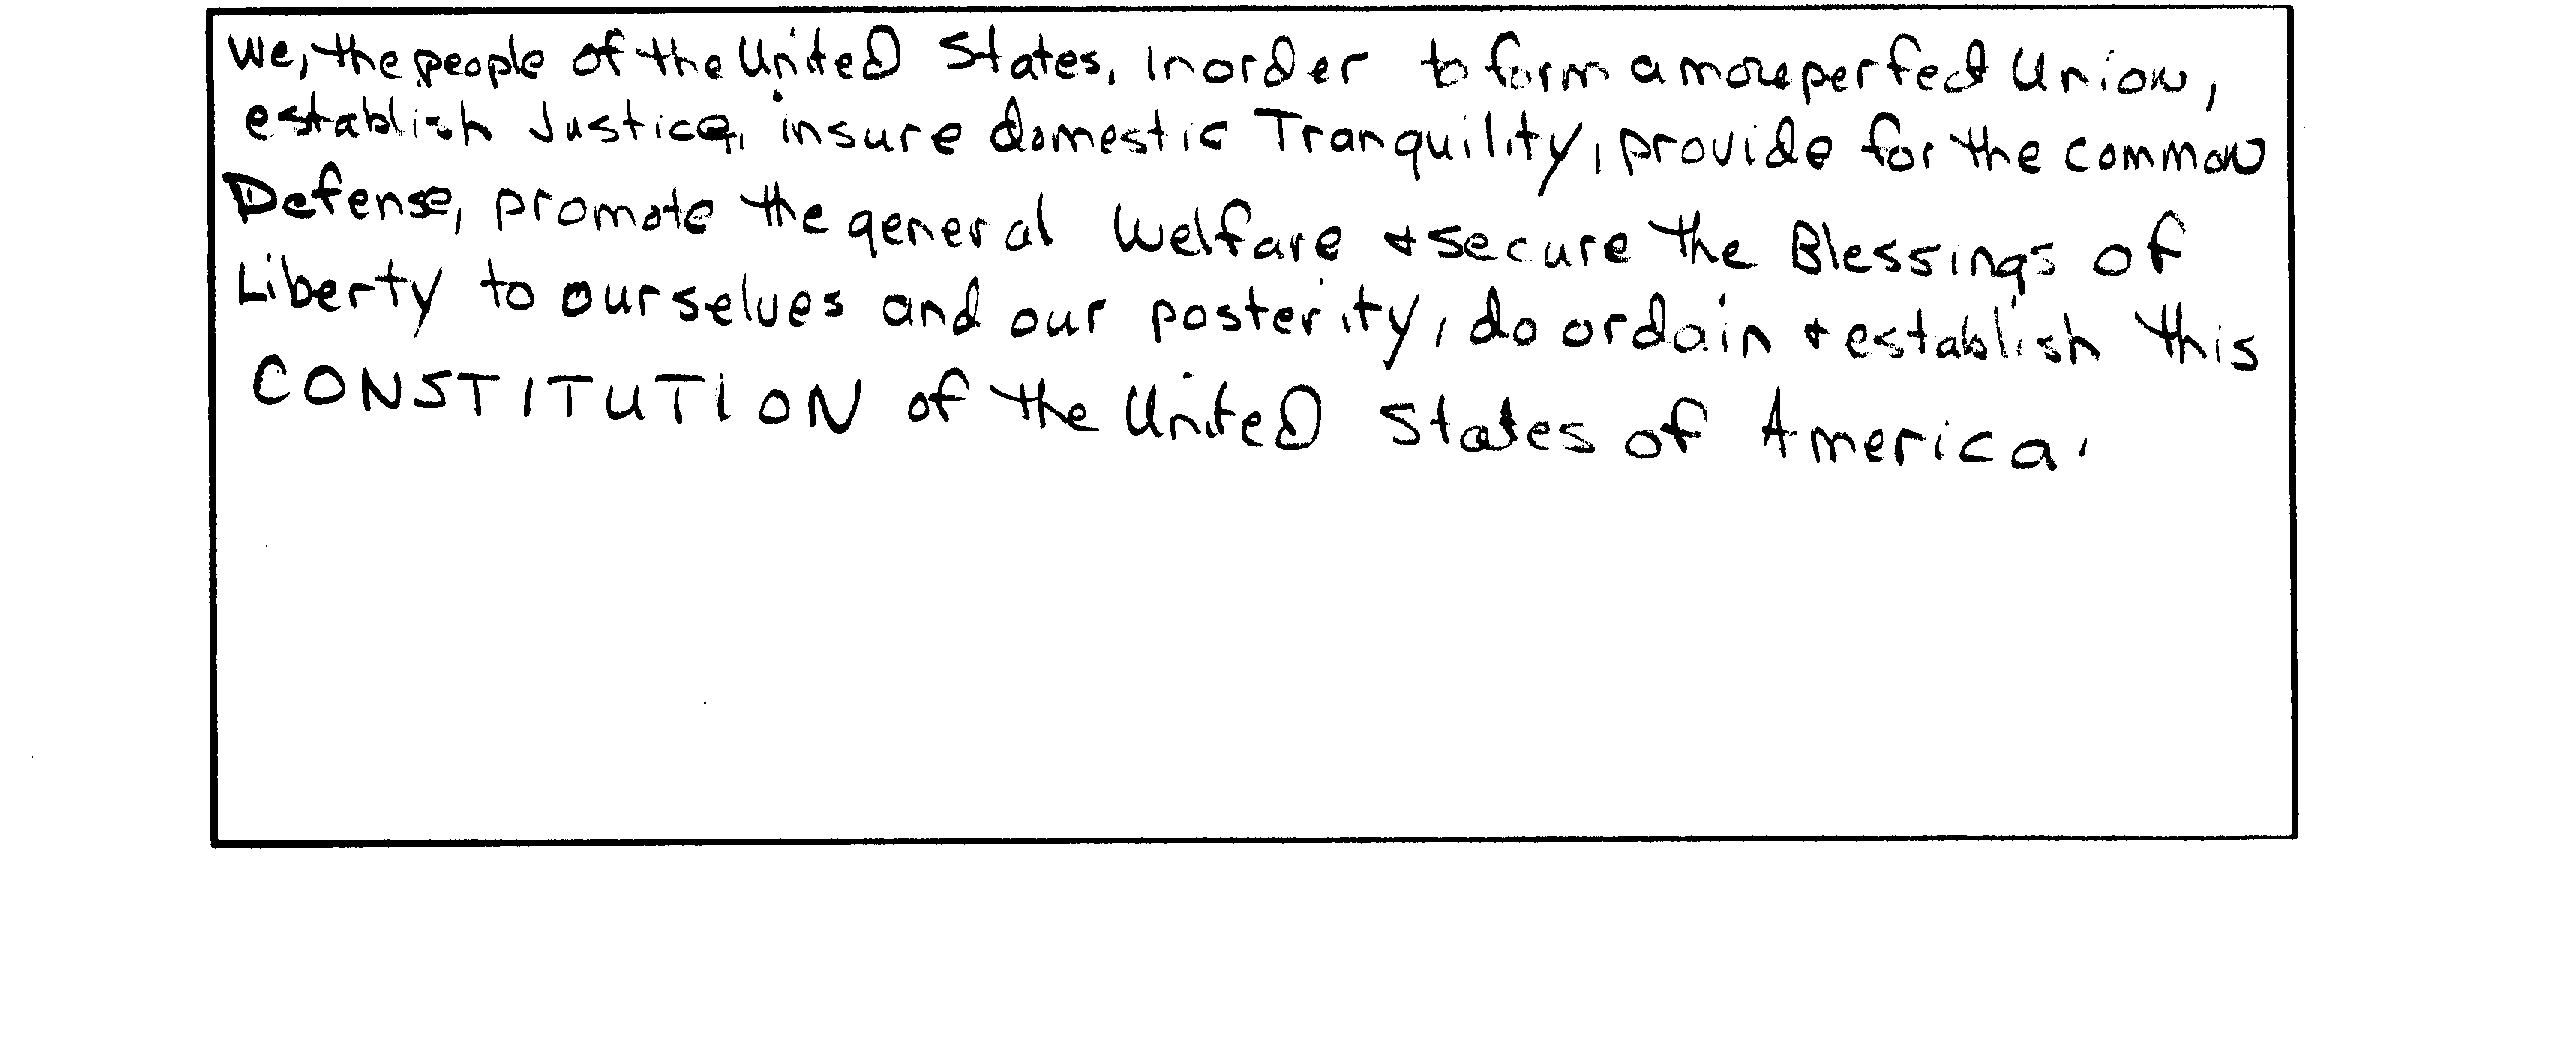 We, the people of the United States, in order to form a more perfect Union,
establish Justice, insure domestic Tranquility, provide for the common
Defense, promote the general Welfare & secure the Blessings of
Liberty to ourselves and our posterity, do ordain & establish this
CONSTITUTION of the United States of America.